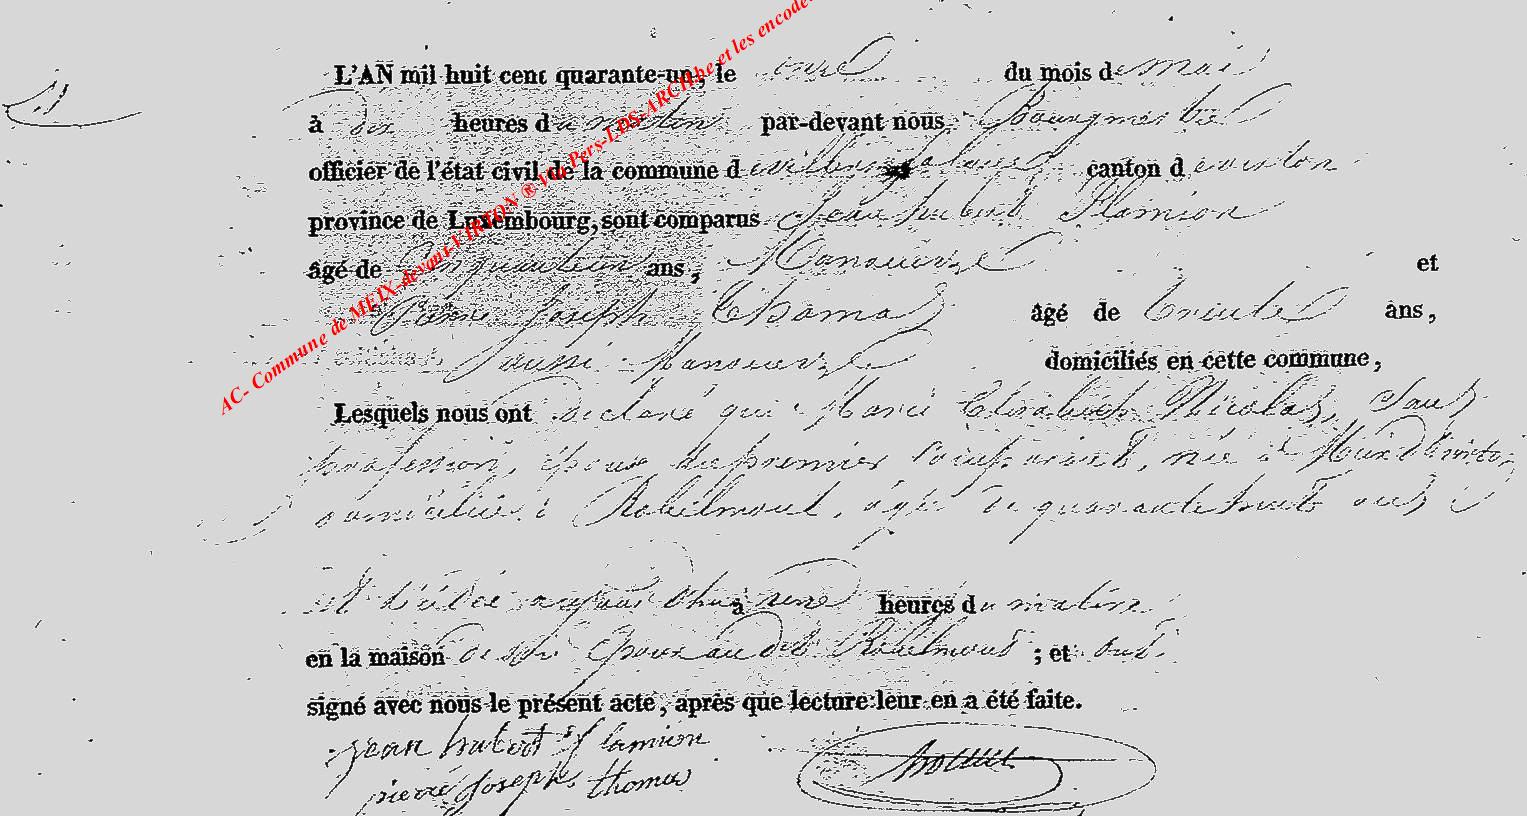 L'AN mil huit cent quarante-un, le onze du mois de mai
à dix heures du matin par-devant nous Bourgmestre
officier de l'état civil de la commune de canton de virton
province de Luxembourg, sont comparus Jean hubert Flamion
âgé de ans, Manœuvre et
Pierre Joseph Thomas âgé de trente ans,
aussi Manœuvre domiciliés en cette commune,
Lesquels nous ont déclaré que Marie Elisabeth Nicolas, sans
profession, épouse du premier comparant, née à Meix dt virton
domiciliée à Robelmont, âgée de quarante huit ans
est décédée aujourd'hui à heures du matin
en la maison de son époux audit Robelmont ; et ont
signé avec nous le présent acte, après que lecture leur en a été faite.
jean hubert flamion
pierre Joseph thomas
AC- Commune de MEIX-devant-VIRTON ® Via Pers-LDS-ARCH.be et les encode